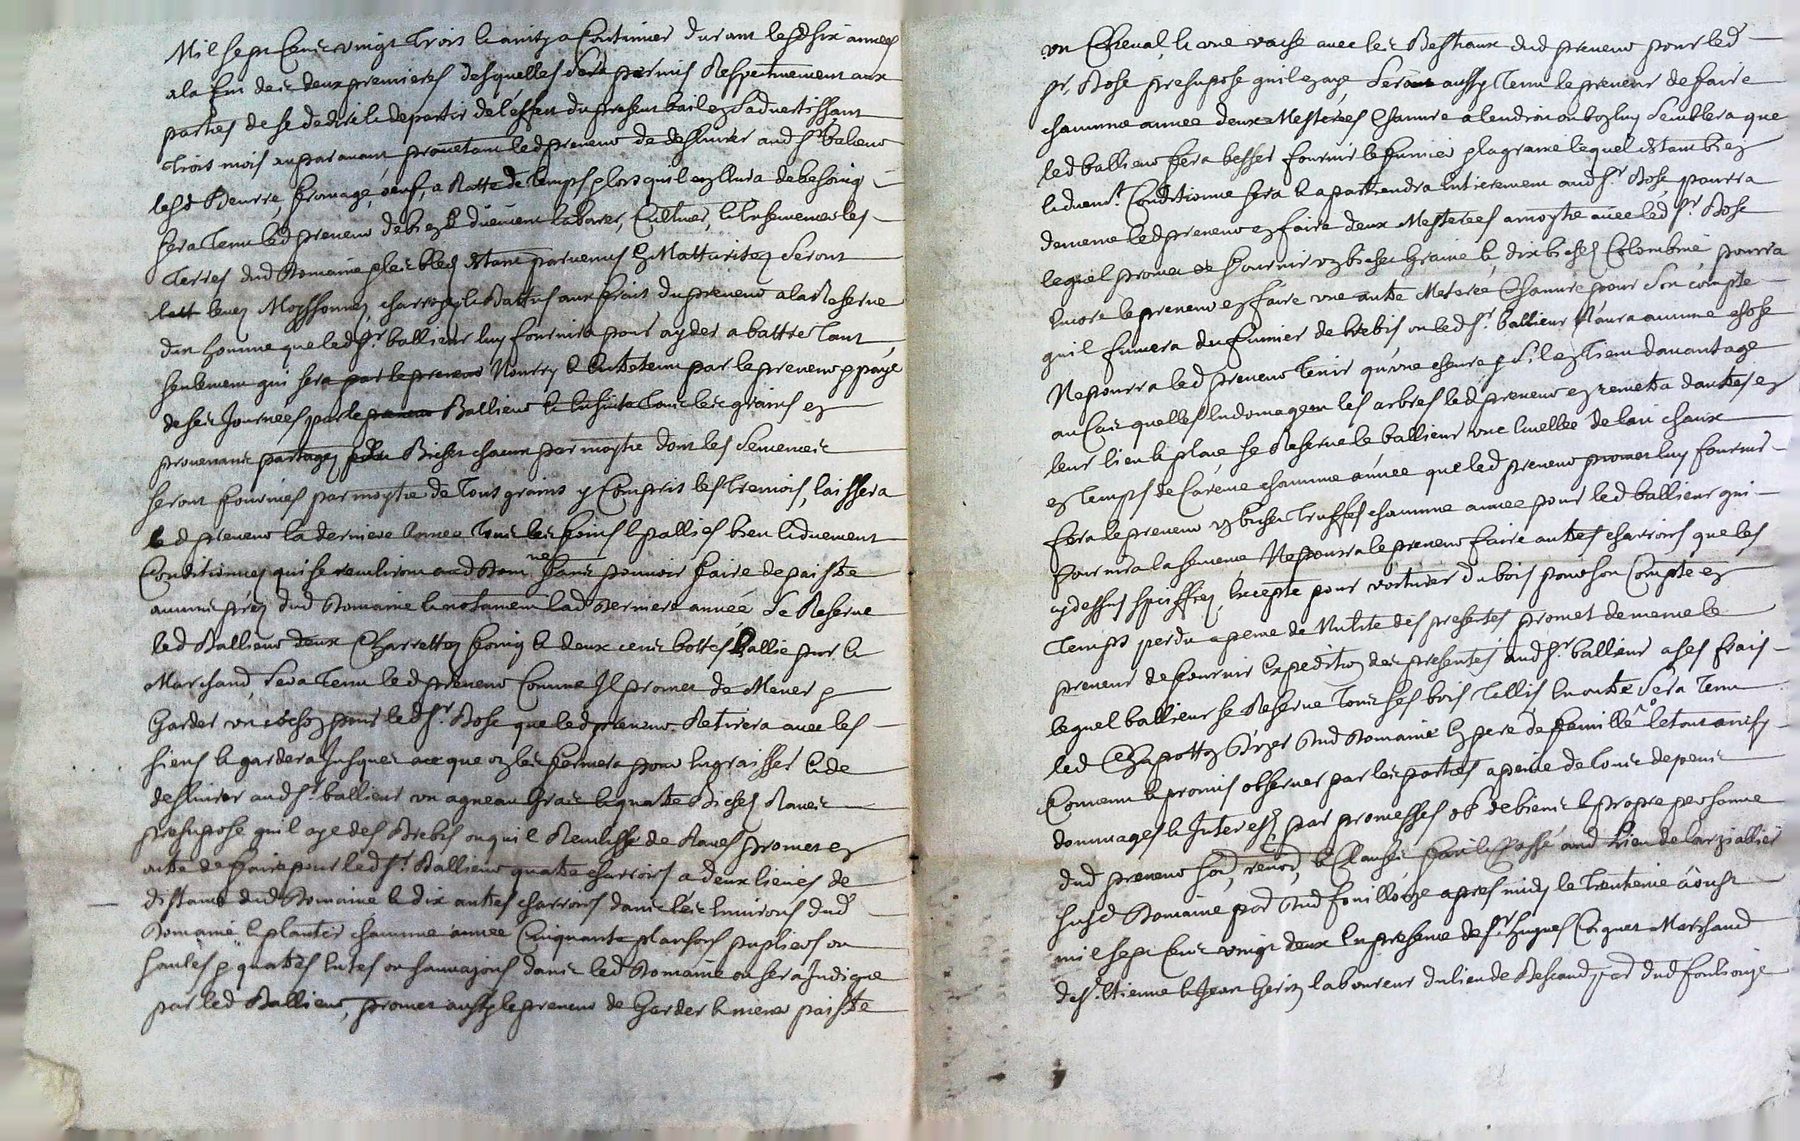 Mil sept Cens vingt trois et ainsy a Continuer durant lesd six années
a la fin des deux premieres desquelles sera permis Respectivement aux
parties de se dedire et departir de l'effect du present bail en s'advertissant
trois mois auparavant promettant led preneur de deslivrer aud sr bailleur
lesd Beurre, fromage, oeufs, a Ratte de temps et lors quil en aura de besoing
sera tenu led preneur de bien et duement labourer, Cultiver, et Ensemencer les
Terres dud Domaine et les bleds estant parvenus en Matturitez seront
levez Moissonnez, charroyez et Battus aux frais du preneur a la Reserve
dun homme que led sr bailleur luy fournira pour ayder a battre tant
seulement qui sera par le preneur Nourry et Entretenu par le preneur et payé
de ses Journées par le preneur Bailleur et Ensuite tous les grains en
provenans partagez Bichet chacun par moytié dont les semences
seront fournies par moytié de tous grains y Compris les tremois, laissera
led preneur la derniere année tous les foins et pallies bien et duement
Conditionnés qui se ceuilliront aud Domne sans pouvoir faire depaistre
aucuns préz dud Domaine et notament lad derniere année Se Reserve
led Bailleur deux Charrettes foing et deux cens bottes Pallie pur et
Marchand, Sera tenu led preneur Comme Il promet de Mener et
Garder un cochon pour led sr Rose que led preneur Retirera avec les
siens et gardera Jusques a ce que on les fermera pour Engraisser et de
deslivrer aud sr bailleur un agneau Gras et quatre Bichets Raves
presupose quil aye des Brebis ou quil Reculisse de Raves promet en
outre de faire pour led sr Bailleur quatre charrois a deux lieues de
distance dud Domaine et dix autres charrois dans les Environs dud
Domaine et planter chacune année Cinquante plansons pupliers ou
saules et quatres Entes ou sauvajons dans led Domaine ou sera Indiqué
par led Bailleur, promet aussy le preneur de Garder et mener paistre
un Cheval, et une vache avec les Bestiaux dud preneur pour led
sr Rose presupose quil en aye, Sera aussy tenu le preneur de faire
chacune année deux Mesterées Chanvre a lendroit ou bon luy semblera que
led bailleur fera besser fournir le fumier et la graine lequel estant bien
et duemt Conditionné sera et apartiendra Entierement aud sr Rose, pourra
de meme led preneur en faire deux Mesterees a moytié avec led sr Rose
lequel promet de fournir un bichet Graine et dix bichets Colombine pourra
Encore le preneur en faire une autre Meterée Chanvre pour son compte
quil fumera du fumier de brebis ou led sr bailleur n'aura aucune chose
Ne pourra led preneur tenir qu'une chevre et s'il en tient davantage
au Cas quelles Endomagent les arbres led preneur en remettra dautres en
leur lieu et place, se Reserve le bailleur une Cuellée de lait chaux
en temps de Careme chacune année que led preneur promet luy fournir
fera le preneur un bichet truffes chacune année pour led bailleur qui
fournira la semence Ne pourra le preneur faire autres charrois que les
cydessus speciffiez, Excepté pour voiturer du bois pour son Compte en
temps perdu a peine de Nullité des presentes promet de meme le
preneur de fournir Expedition des presentes aud sr bailleur a ses frais
lequel bailleur se Reserve tous ses bois tallis, En outre sera tenu
led Chapotton d'user dud Domaine En pere de famille, le tout ainsy
Convenu et promis observer par les parties a peine de tous depens
dommages et Interests, par promesses ob de biens et propre personne
dud preneur sod, renod, et Clauses fait et Passé aud Lieu de Larziallier
susd Domaine pard dud fouillouze apres midy le trentieme aoust
mil sept Cens vingt deux En presence de sr hugues Coignet Marchand
de st Etienne et Jean Gerin laboureur du lieu de Bescaud pard dud foulouze